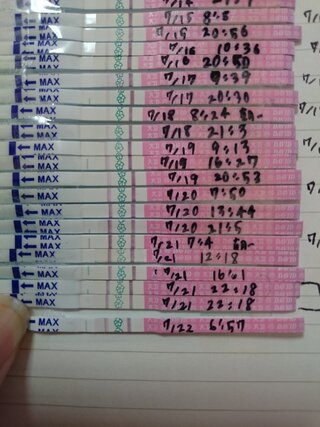 MAX 7/15 8:5
MAX 7/15 20:56
MAX 7/16 10:36
MAX 7/16 20:50
MAX 7/17 9:39
MAX 7/17 20:30
MAX 7/18 8:24
MAX 7/18 21:3
MAX 7/19 9:13
MAX 7/19 16:27
MAX 7/19 20:53
MAX 7/20 7:50
MAX 7/20 13:44
MAX 7/20 21:5
MAX 7/21 7:4
MAX 7/21 12:18
MAX 7/21 16:1
MAX 7/21 22:18
MAX 7/21 22:18
MAX 7/22 6:57